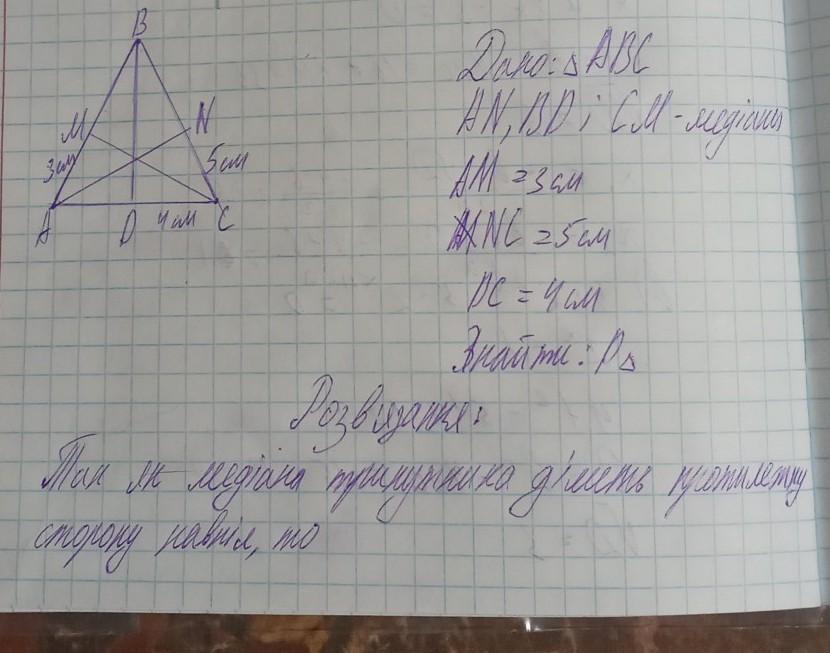 B
M
N
3 см
5 см
A
D
4 см
C
Дано: △ ABC
AN, BD і CM - медіани
AM = 3 см
NC = 5 см
DC = 4 см
Знайти: P△
Розв'язання:
Так як медіана трикутника ділить протилежну
сторону навпіл, то